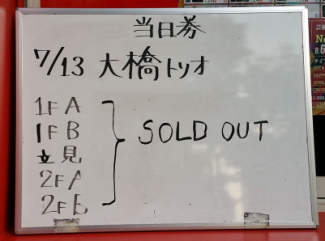 当日券
7/13 大橋トリオ
1F A
1F B
立見
2F A
2F B
SOLD OUT